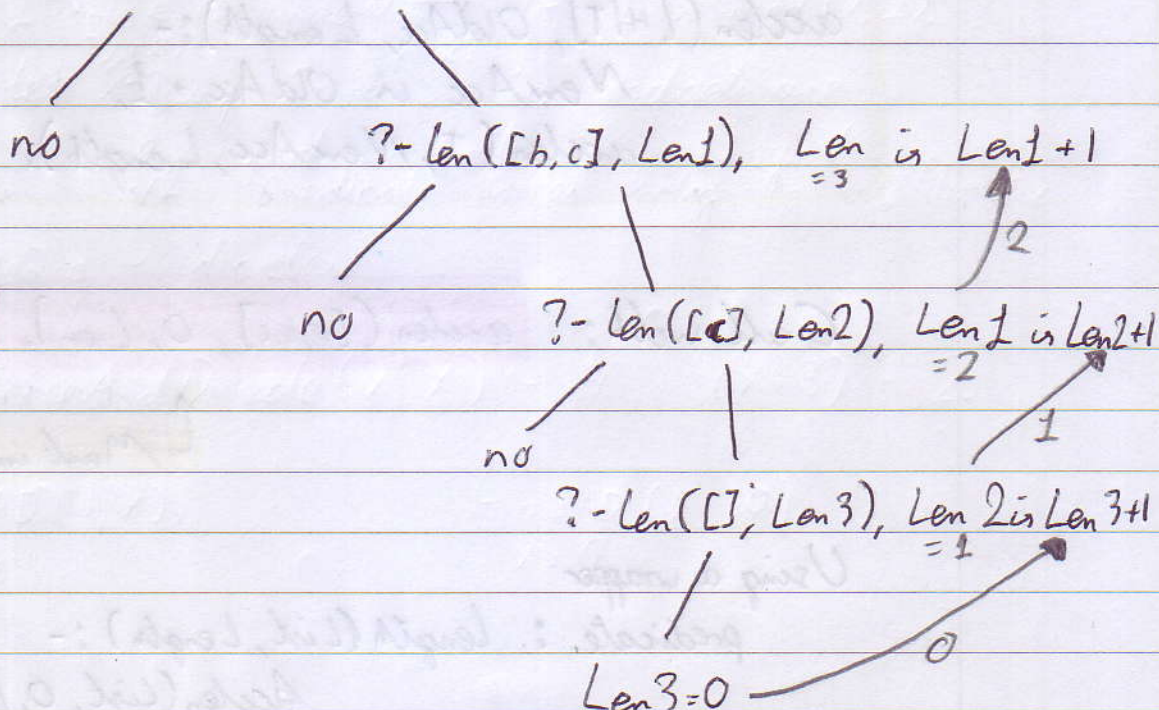 no ?- len([b,c], Len1), Len is Len1+1
=3
2
no ?- len([c], Len2), Len1 is Len2+1
=2
1
no
?- len([], Len3), Len2 is Len3+1
=1
0
Len3=0